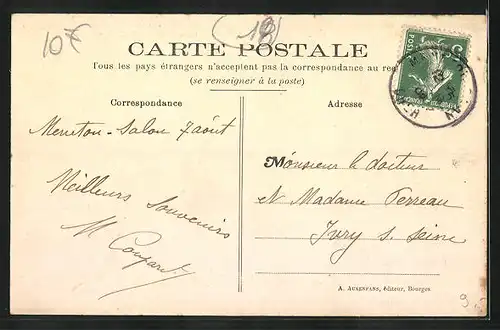 10F
(18)
CARTE POSTALE
Tous les pays étrangers n'acceptent pas la correspondance au re
(se renseigner à la poste)
Correspondance
Adresse
Menetou-Salon 7 août
Meilleurs souvenirs
M
Monsieur le docteur
et Madame Perreau
Ivry s. Seine
A. AUXENFANS, éditeur, Bourges